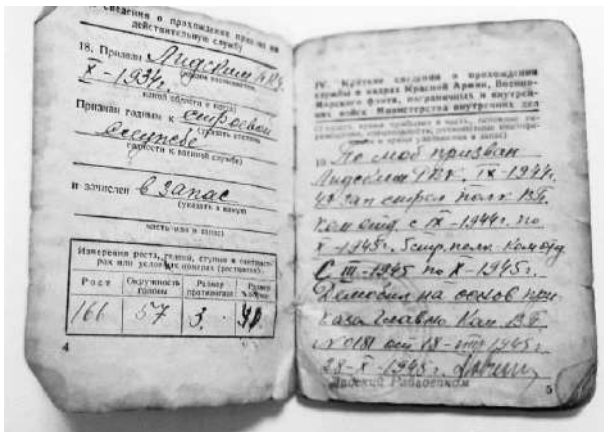 сведения о прохождении призыва на
действительную службу
18. Призван Лидским РВК
X - 1934г.
какой области и края)
Признан годным к строевой
службе (указать степень
годности к военной службе)
и зачислен в запас
(указать в какую
часть или в запас)
Измерения роста, головы, ступни в сантимет-
рах или условных номерах (ростовках)
Рост
Окружность
головы
Размер
противогаза
Размер
166
57
3.
4
IV. Краткие сведения о прохождении
службы в кадрах Красной Армии, Военно-
Морского флота, пограничных и внутрен-
них войск Министерства внутренних дел
19 По моб призван
Лидским РВК. IX-1944г.
зап стрел полк ВП.
ком отд. с IX-1944г. по
-1945г. 5 стр. полк. Ком отд
С III-1945 по X-1945г.
Демобил на основ при-
каза Главно Ком ВП
№ 0181 от 18-VIII 1945г.
28-X-1945г.
Лидский Райвоенком
5